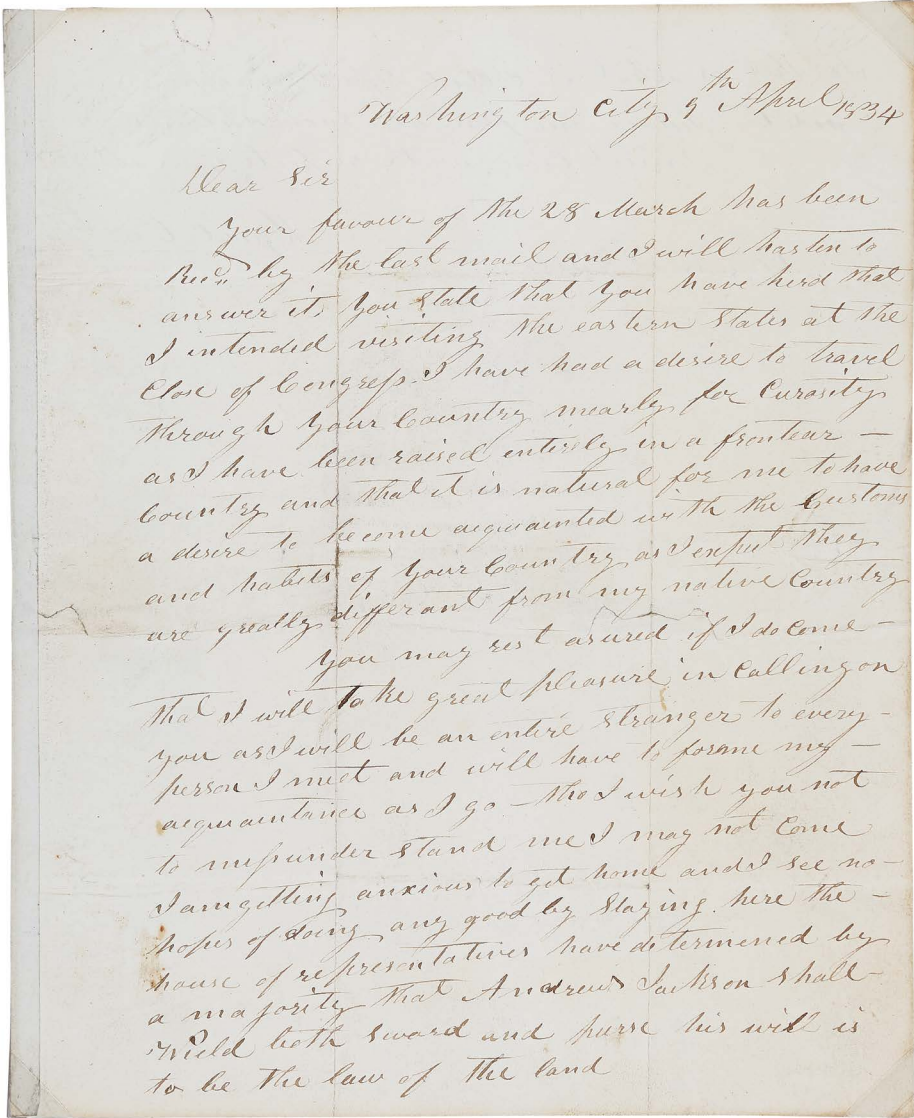 Washington City 9th April 1834
Dear Sir
Your favour of the 28 March has been
Recd. by the last mail and I will hasten to
answer it, you state that you have herd that
I intended visiting the eastern States at the
Close of Congress. I have had a desire to travel
through your Country mearly for Curosity
as I have been raised entirely in a frontear —
Country and that it is natural for me to have
a desire to become acquainted with the Customs
and habits of your Country as I expect they
are greatly differant from my native Country
You may rest asured if I do Come —
that I will take great pleasure in Calling on
you as I will be an entire stranger to every-
person I meet and will have to forme my —
acquaintance as I go — tho I wish you not
to missunder stand me I may not Come
I am getting anxious to get home and I see no —
hopes of doing any good by Staying here the —
house of representatives have determined by
a majority that Andrew Jackson shall —
Wield both Sword and purse his will is
to be the law of the land